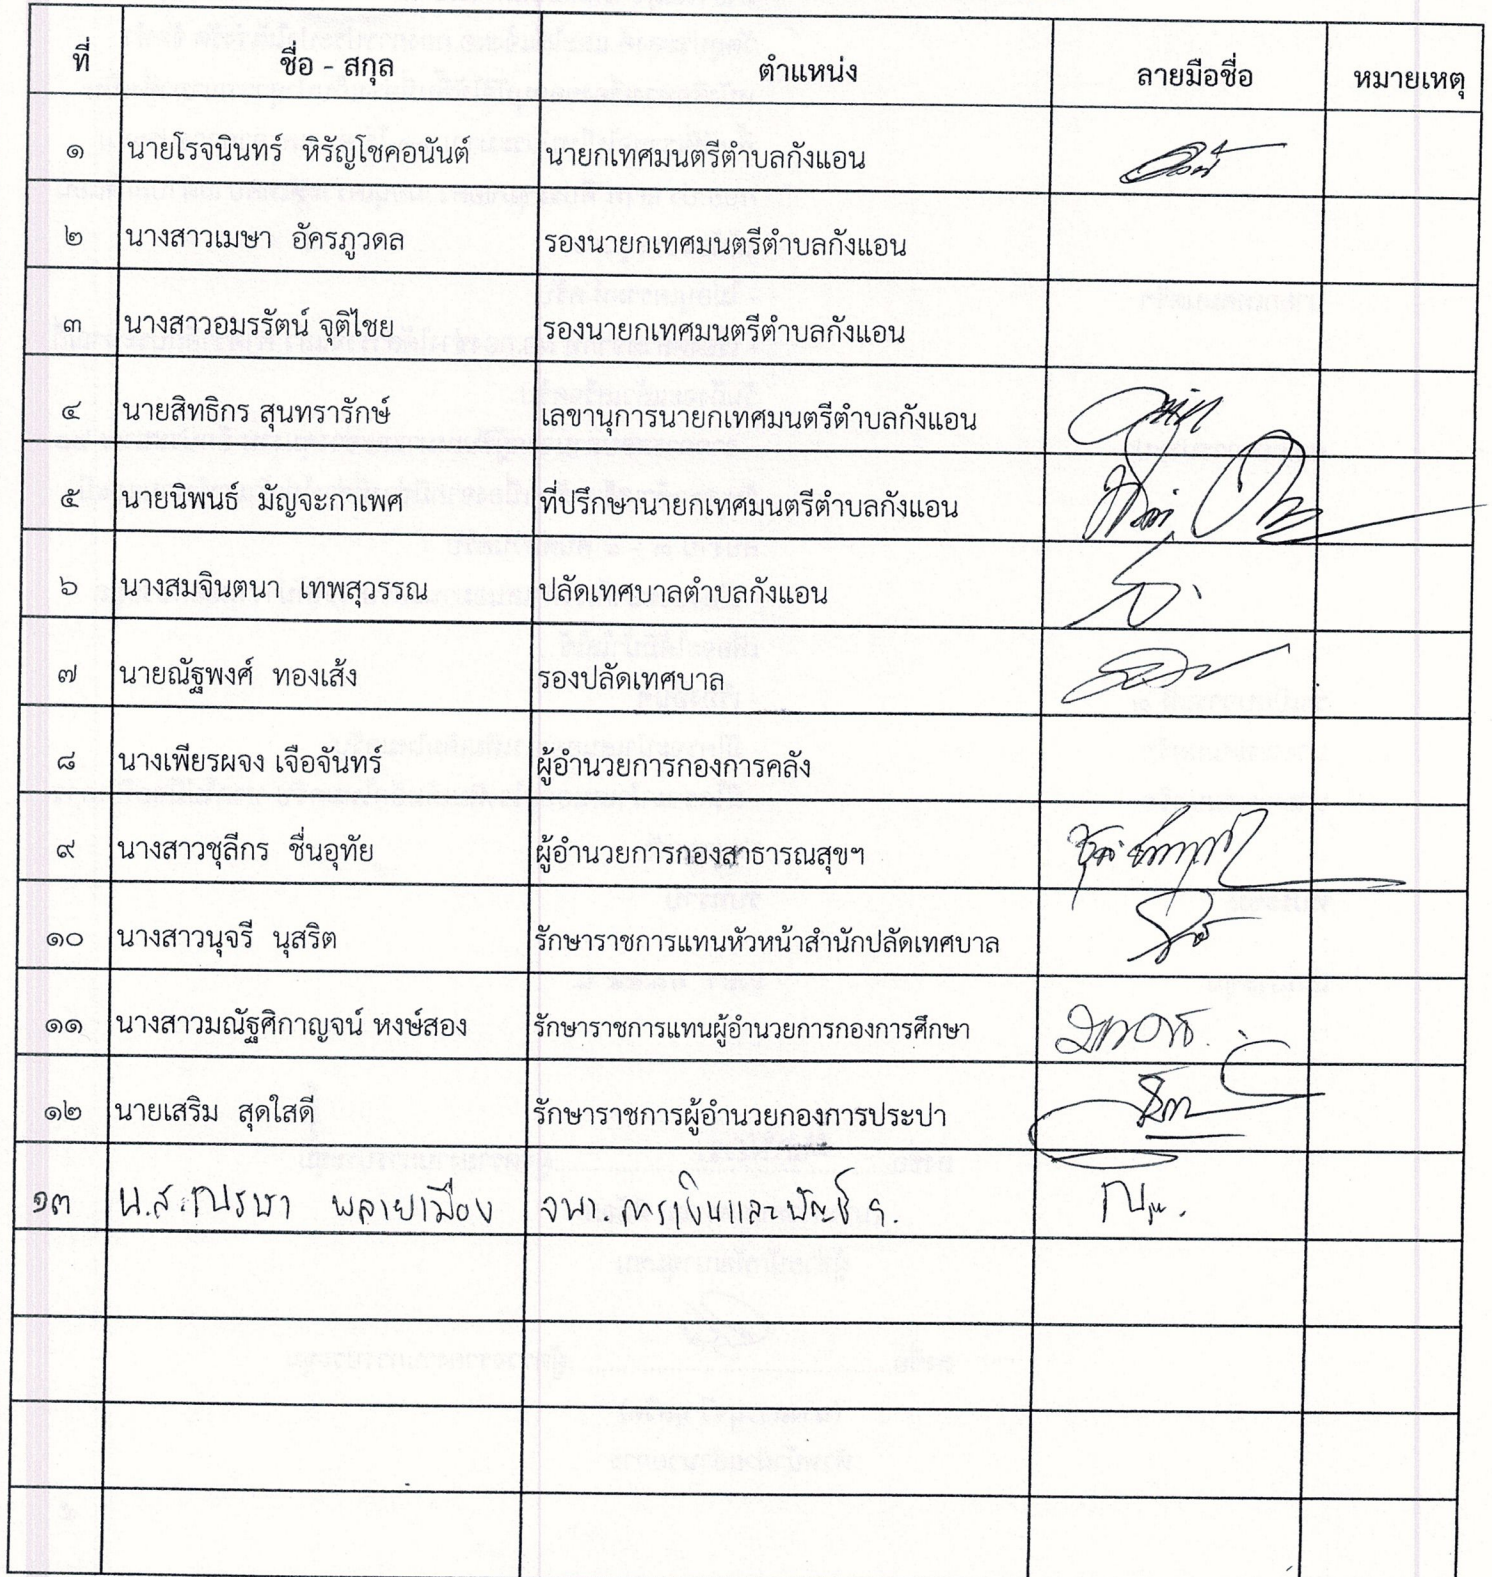 ที่ ชื่อ - สกุล ตำแหน่ง ลายมือชื่อ หมายเหตุ
๑ นายโรจนินทร์ หิรัญโชคอนันต์ นายกเทศมนตรีตำบลกังแอน
๒ นางสาวเมษา อัครภูวดล รองนายกเทศมนตรีตำบลกังแอน
๓ นางสาวอมรรัตน์ จุติไชย รองนายกเทศมนตรีตำบลกังแอน
๔ นายสิทธิกร สุนทรารักษ์ เลขานุการนายกเทศมนตรีตำบลกังแอน
๕ นายนิพนธ์ มัญจะกาเพศ ที่ปรึกษานายกเทศมนตรีตำบลกังแอน
๖ นางสมจินตนา เทพสุวรรณ ปลัดเทศบาลตำบลกังแอน
๗ นายณัฐพงศ์ ทองเส้ง รองปลัดเทศบาล
๘ นางเพียรผจง เจือจันทร์ ผู้อำนวยการกองการคลัง
๙ นางสาวชุลีกร ชื่นอุทัย ผู้อำนวยการกองสาธารณสุขฯ
๑๐ นางสาวนุจรี นุสริต รักษาราชการแทนหัวหน้าสำนักปลัดเทศบาล
๑๑ นางสาวมณัฐศิกาญจน์ หงษ์สอง รักษาราชการแทนผู้อำนวยการกองการศึกษา
๑๒ นายเสริม สุดใสดี รักษาราชการผู้อำนวยกองการประปา
๑๓ น.ส. ณรษา พลายเมือง จพง.การเงินและบัญชี